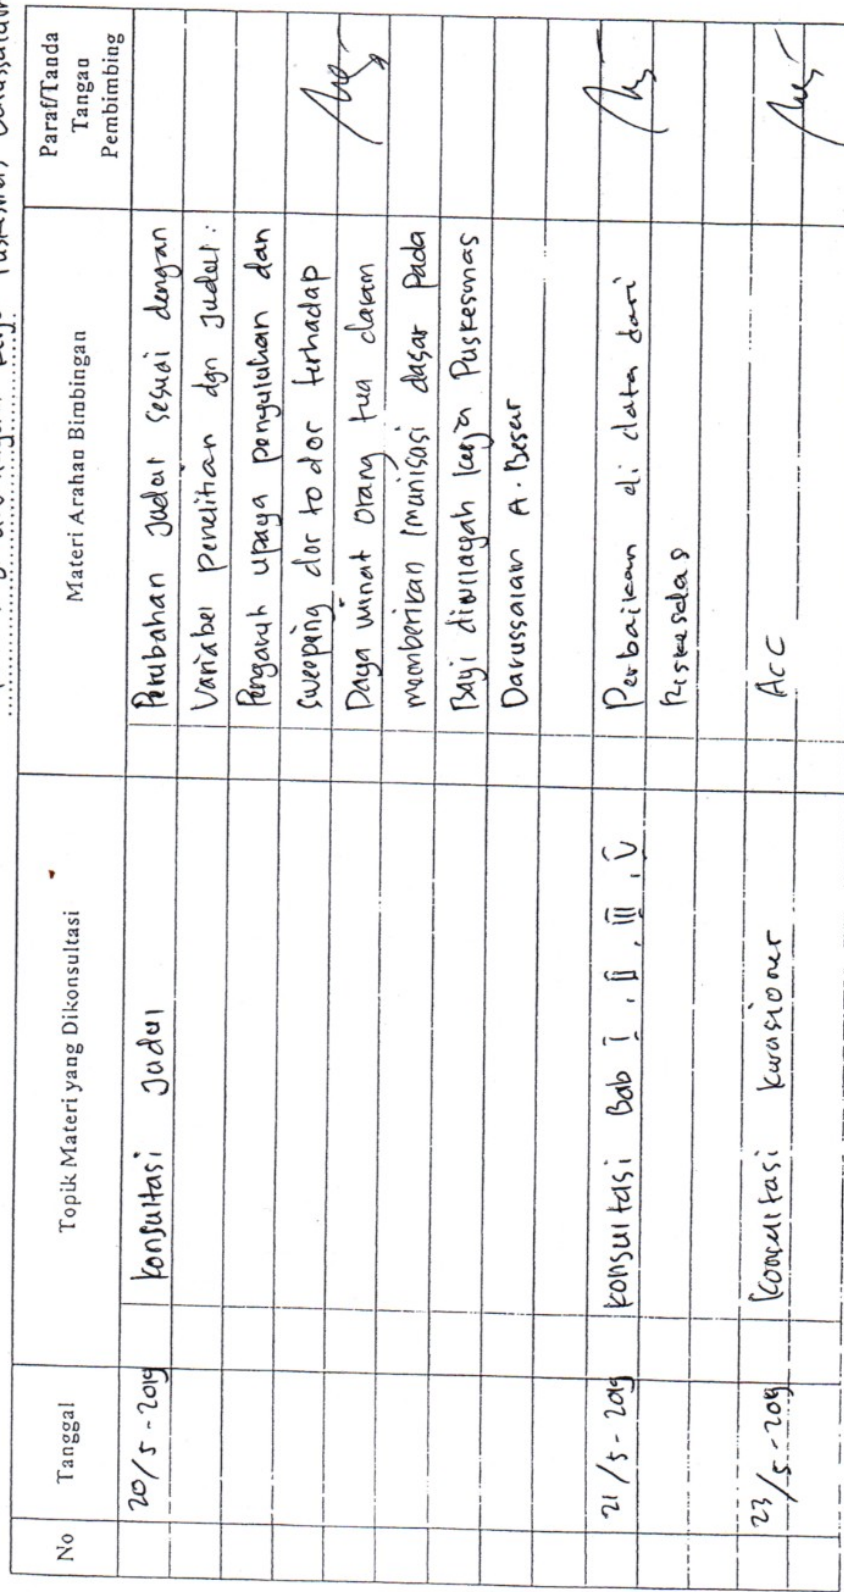 Puskesmas Darussalam
No
Tanggal
Topik Materi yang Dikonsultasi
Materi Arahan Bimbingan
Paraf/Tanda
Tangan
Pembimbing
20/5-2019
konsultasi Judul
Perubahan Judul sesuai dengan
Variabel penelitian dgn Judul :
Pengaruh upaya penyuluhan dan
sweeping dor to dor terhadap
Daya minat orang tua dalam
memberikan Imunisasi dasar pada
Bayi diwilayah kerja Puskesmas
Darussalam A. Besar
21/5-2019
konsultasi Bab I, II, III, IV
Perbaikan di data dari
Riskesdas
23/5-2019
Konsultasi kuesioner
Acc